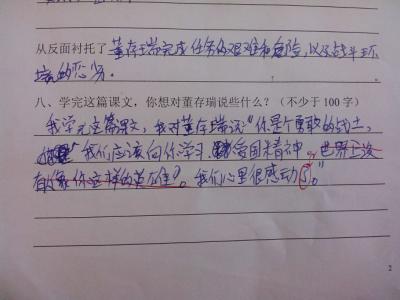 从反面衬托了董存瑞完成任务的艰难和危险，以及战斗环
境的恶劣。
八、学完这篇课文，你想对董存瑞说些什么？（不少于 100 字）
我学完这篇课文，我对董存瑞说“你是个勇敢的战士，
我们应该向你学习 爱国精神，世界上没
有像你这样的英雄”。我们心里很感动。”
2